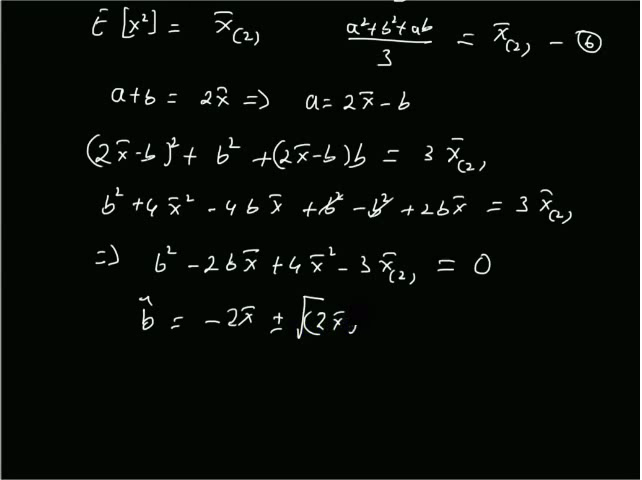 E [x²] = x̄₍₂₎ (a²+b²+ab)/3 = x̄₍₂₎ – ⑥
a+b = 2x̄ => a = 2x̄ – b
(2x̄–b)² + b² + (2x̄–b)b = 3 x̄₍₂₎
b² + 4x̄² – 4bx̄ + b² – b² + 2bx̄ = 3 x̄₍₂₎
=> b² – 2bx̄ + 4x̄² – 3x̄₍₂₎ = 0
b̂ = – 2x̄ ± √(2x̄,